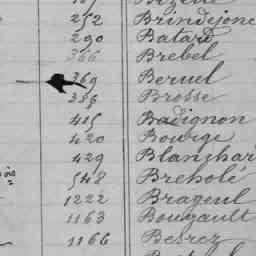 252 Brindejonc
290 Batard
366 Brebel
369 Beruel
358 Brosse
415 Badignon
420 Bourge
429 Blanchar
548 Breholé
1222 Brageul
1163 Bougault
1166 Besrez